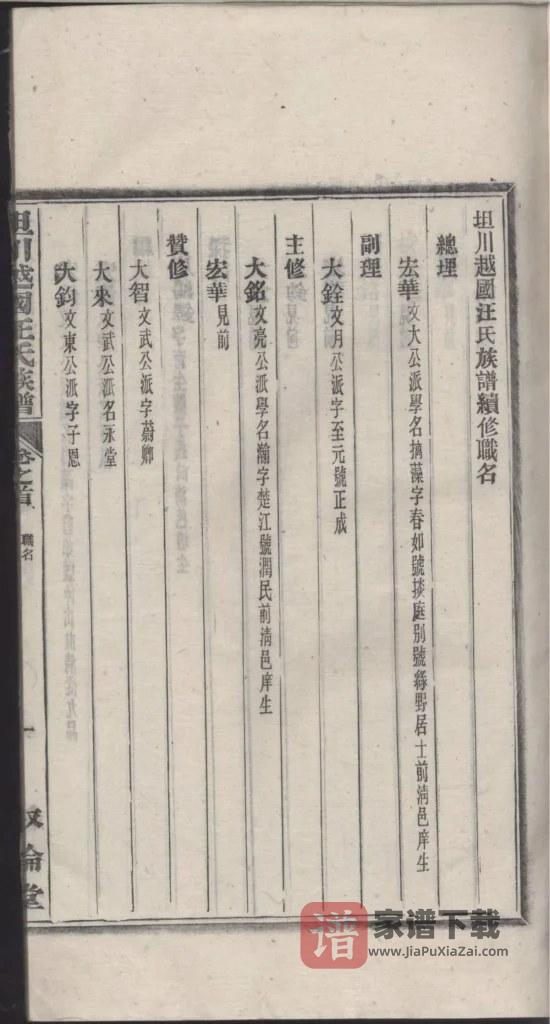 坦川越國汪氏族譜續修職名
總理
宏華文大公派學名摛藻字春如號掞庭別號綠野居士前淸邑庠生
副理
大銓文月公派字至元號正成
主修
大銘文亮公派學名瀚字楚江號潤民前淸邑庠生
宏華見前
贊修
大智文武公派字蔚卿
大來文武公派名永堂
大鈞文東公派字子恩
坦川越國汪氏族譜
卷之首
職名
一
敘倫堂
谱
家谱下载
www.JiaPuXiaZai.com